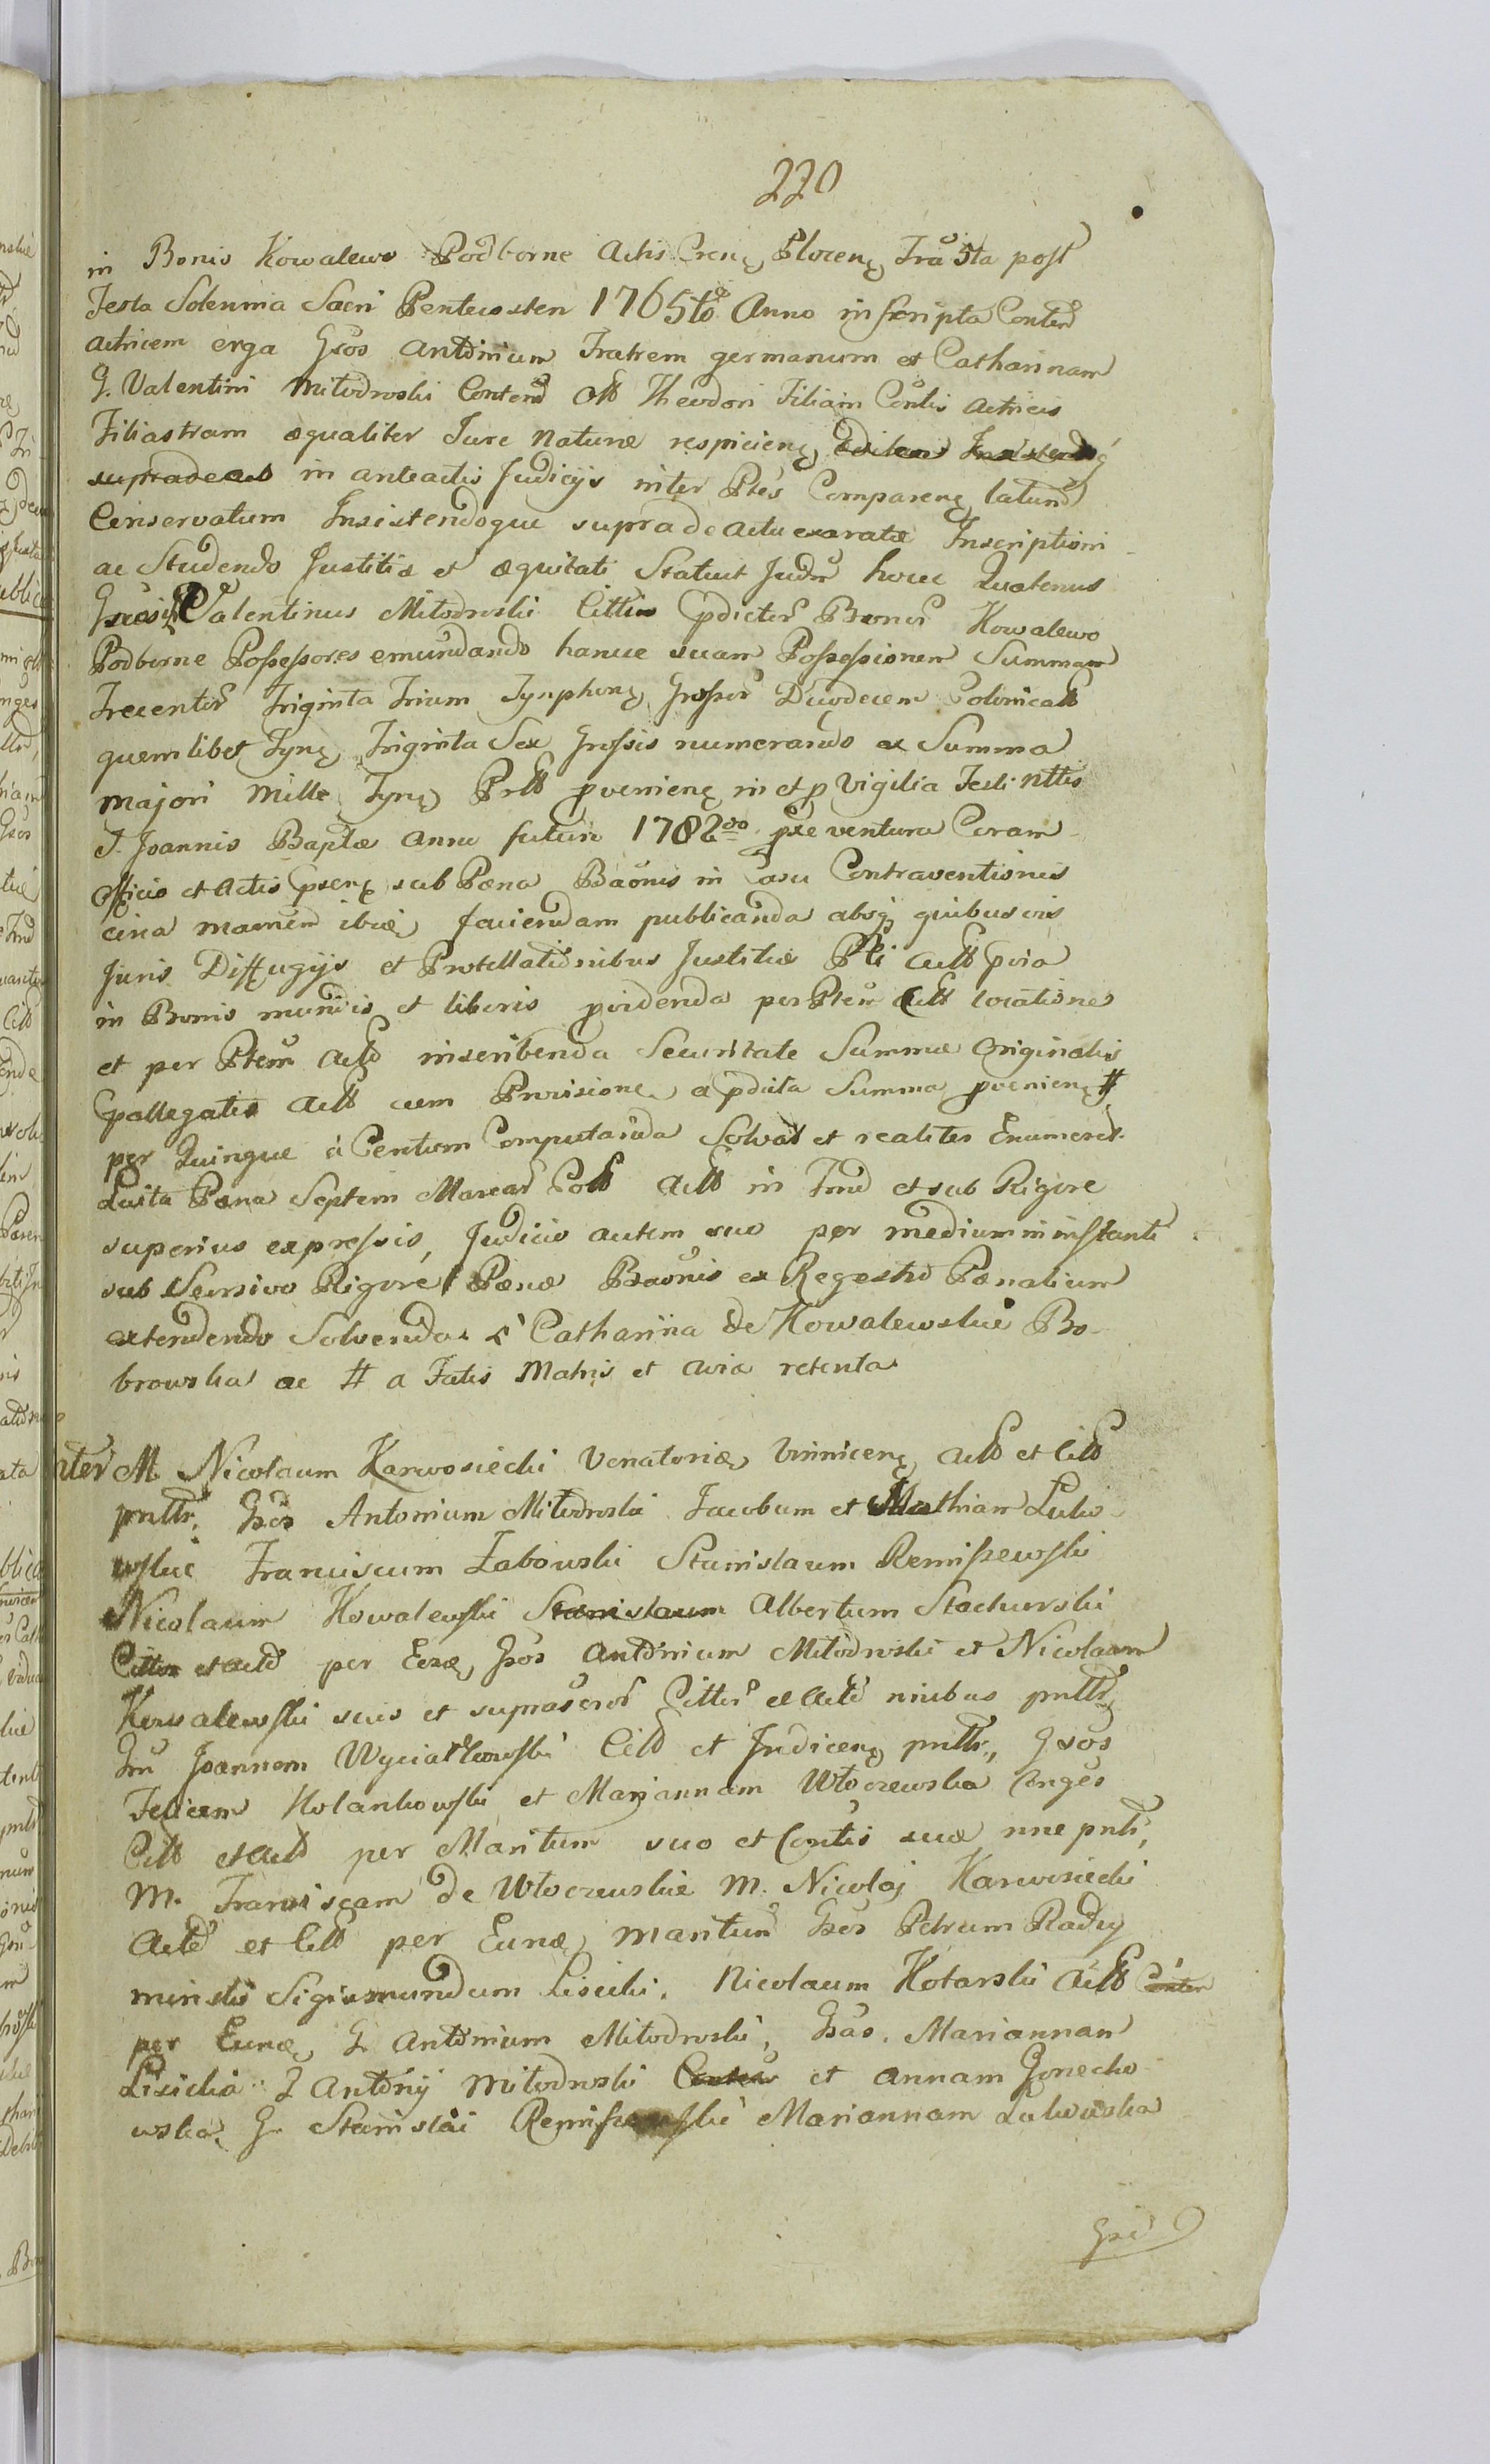 220
in Bonis Kowalewo Podborne Actis Crens, Plocens, Fra 5ta post
Festa Solennia Sacri Pentecosten 1765to Anno inscripta Conten
actricem erga Gsos Antonium Fratrem germanum et Catharinam
G. Valentini Miłodroski Conten Olt Theodori Filiam Contis actricis
Filiastram æqualiter Jure Naturæ respiciens,
supradeact in anteactis Judicijs inter Ptes Comparens, latum
Conservatum Insistendoque supra de actu exaratæ Inscriptioni
ac Studendo Justitiæ et æquitati Statuit Judm hocce Quatenus
Gsus Valentinus Miłodroski Cittus pdictor Bonor Kowalewo
Podborne Possessores emundando hancce suam Possessionem Summam
Trecentor Triginta Trium Tynphons, Grossor Duodecem Polonicalt
quemlibet Tyns, Triginta Sex Grossis numerando ex Summa
majori Mille Tyns, Prlt proveniens, in et p Vigilia Festi Nttis
S. Joannis Baptæ anno futuro 1782do pxe ventura Coram
Officio et Actis psens, sub Pæna Baonis in Casu Contraventionis
circa manem ibiq, faciendam publicanda absq, quibusvis
Juris Diffugijs et Protellationibus Justitiæ Pti Actt pvia
in Bonis mundis et liberis pvidenda per Ptem Citt locatione
et per Ptem Actt inscribenda Securitate Summæ Originalis
pallegatis Actt cum Provisione a pdicta Summa proveniens #
per Quinque à Centum Computanda Solvat et realiter Enumeret
Luita Pæna Septem Marcar Polt Actt in Fnd et sub Rigore
superius expressis, Judicio autem suo per medium ininstanti
sub Sensivo Rigore Pænæ Baonis ex Regestro Pænalium
extendendo Solvenda. à Catharina de Kowalewskie Bo-
browska ac # a Fatis Matris et avia retenta
nter M. Nicolaum Karwosiecki Venatoriæ, Vinnicens, Actt et Citt
pnttr, Gsos Antonium Miłodroski Jacobum et Mathiam Luko-
wskie Franciscum Żabowski Stanislaum Remiszewski
Nicolaum Kowalewski Stanislaum Albertum Stachurski
Cittos et actt per Eosq, Gsos Antonium Miłodroski et Nicolaum
Kowalewski suis et suprascror Cittor et Actt nnibus pnttr,
Gsm Joannem Wyciałkowski Citt et Indicens, pnttr, Gsos
Felicem Kolankowski et Mariannam Włoczewska Conges
Citt et Actt per Maritum suo et Contis suæ nne pntr,
M. Franciscam de Włoczewskie M. Nicolai Karwosiecki
Actt et Citt per Eunq, Maritum Gsos Petrum Radzy
minski Sigismundum Lisicki, Nicolaum Kotarski Actt Conten
per Eunq, G. Antonium Miłodroski, Gsas. Mariannam
Lisicka G Antonij Miłodroski et Annam Gonecko
wska, G. Stanislai Remiszewski Mariannam Lukowska
Gsd